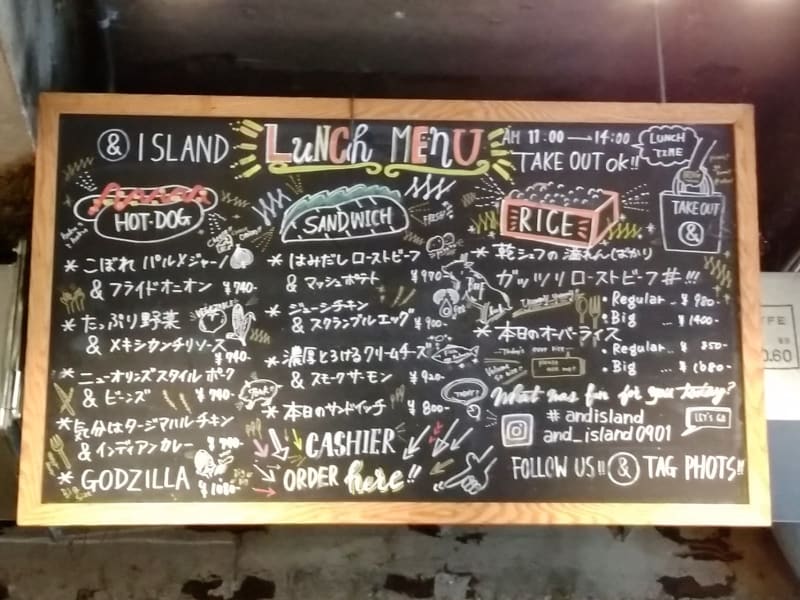 & ISLAND
LUNCH MENU
AM 11:00 14:00
TAKE OUT Ok!!
LUNCH TIME
TAKE OUT
&
HOT-DOG
* こぼれ パルメジャーノ
& フライドオニオン ¥740-
* たっぷり野菜
& メキシカンチリソース
¥740-
* ニューオリンズスタイル ポーク
& ビーンズ
* 気分はタージマハルチキン
& インディアンカレー
* GODZILLA
¥1080-
SANDWICH
FRESH
* はみだし ローストビーフ
& マッシュポテト
* ジューシチキン
& スクランブルエッグ
¥900-
* 濃厚とろけるクリームチーズ
& スモークサーモン
¥920-
TODAY!
* 本日のサンドイッチ
¥800-
CASHIER
ORDER here!!
RICE
ガッツリローストビーフ丼!!!
・Regular.. ¥980-
・Big ... ¥1400-
* 本日のオーバーライス
Today's over rice
・Regular..
・Big ... ¥1080-
What was fun for you today?
# andisland
and_island0901
LET'S GO
FOLLOW US!! & TAG PHOTS!!